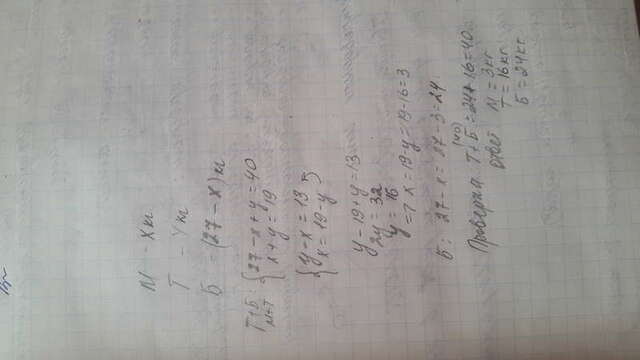 М - Xкг
Т - Yкг
Б = (27 - x) кг
Т+Б: { 27 - x + y = 40
М+Т { x + y = 19
{ y - x = 13
{ x = 19 - y
y - 19 + y = 13
2y = 32
y = 16
=> x = 19 - y = 19 - 16 = 3
Б: 27 - x = 27 - 3 = 24
(40)
Проверка Т + Б = 24 + 16 = 40
ответ М = 3кг
Т = 16кг
Б = 24кг